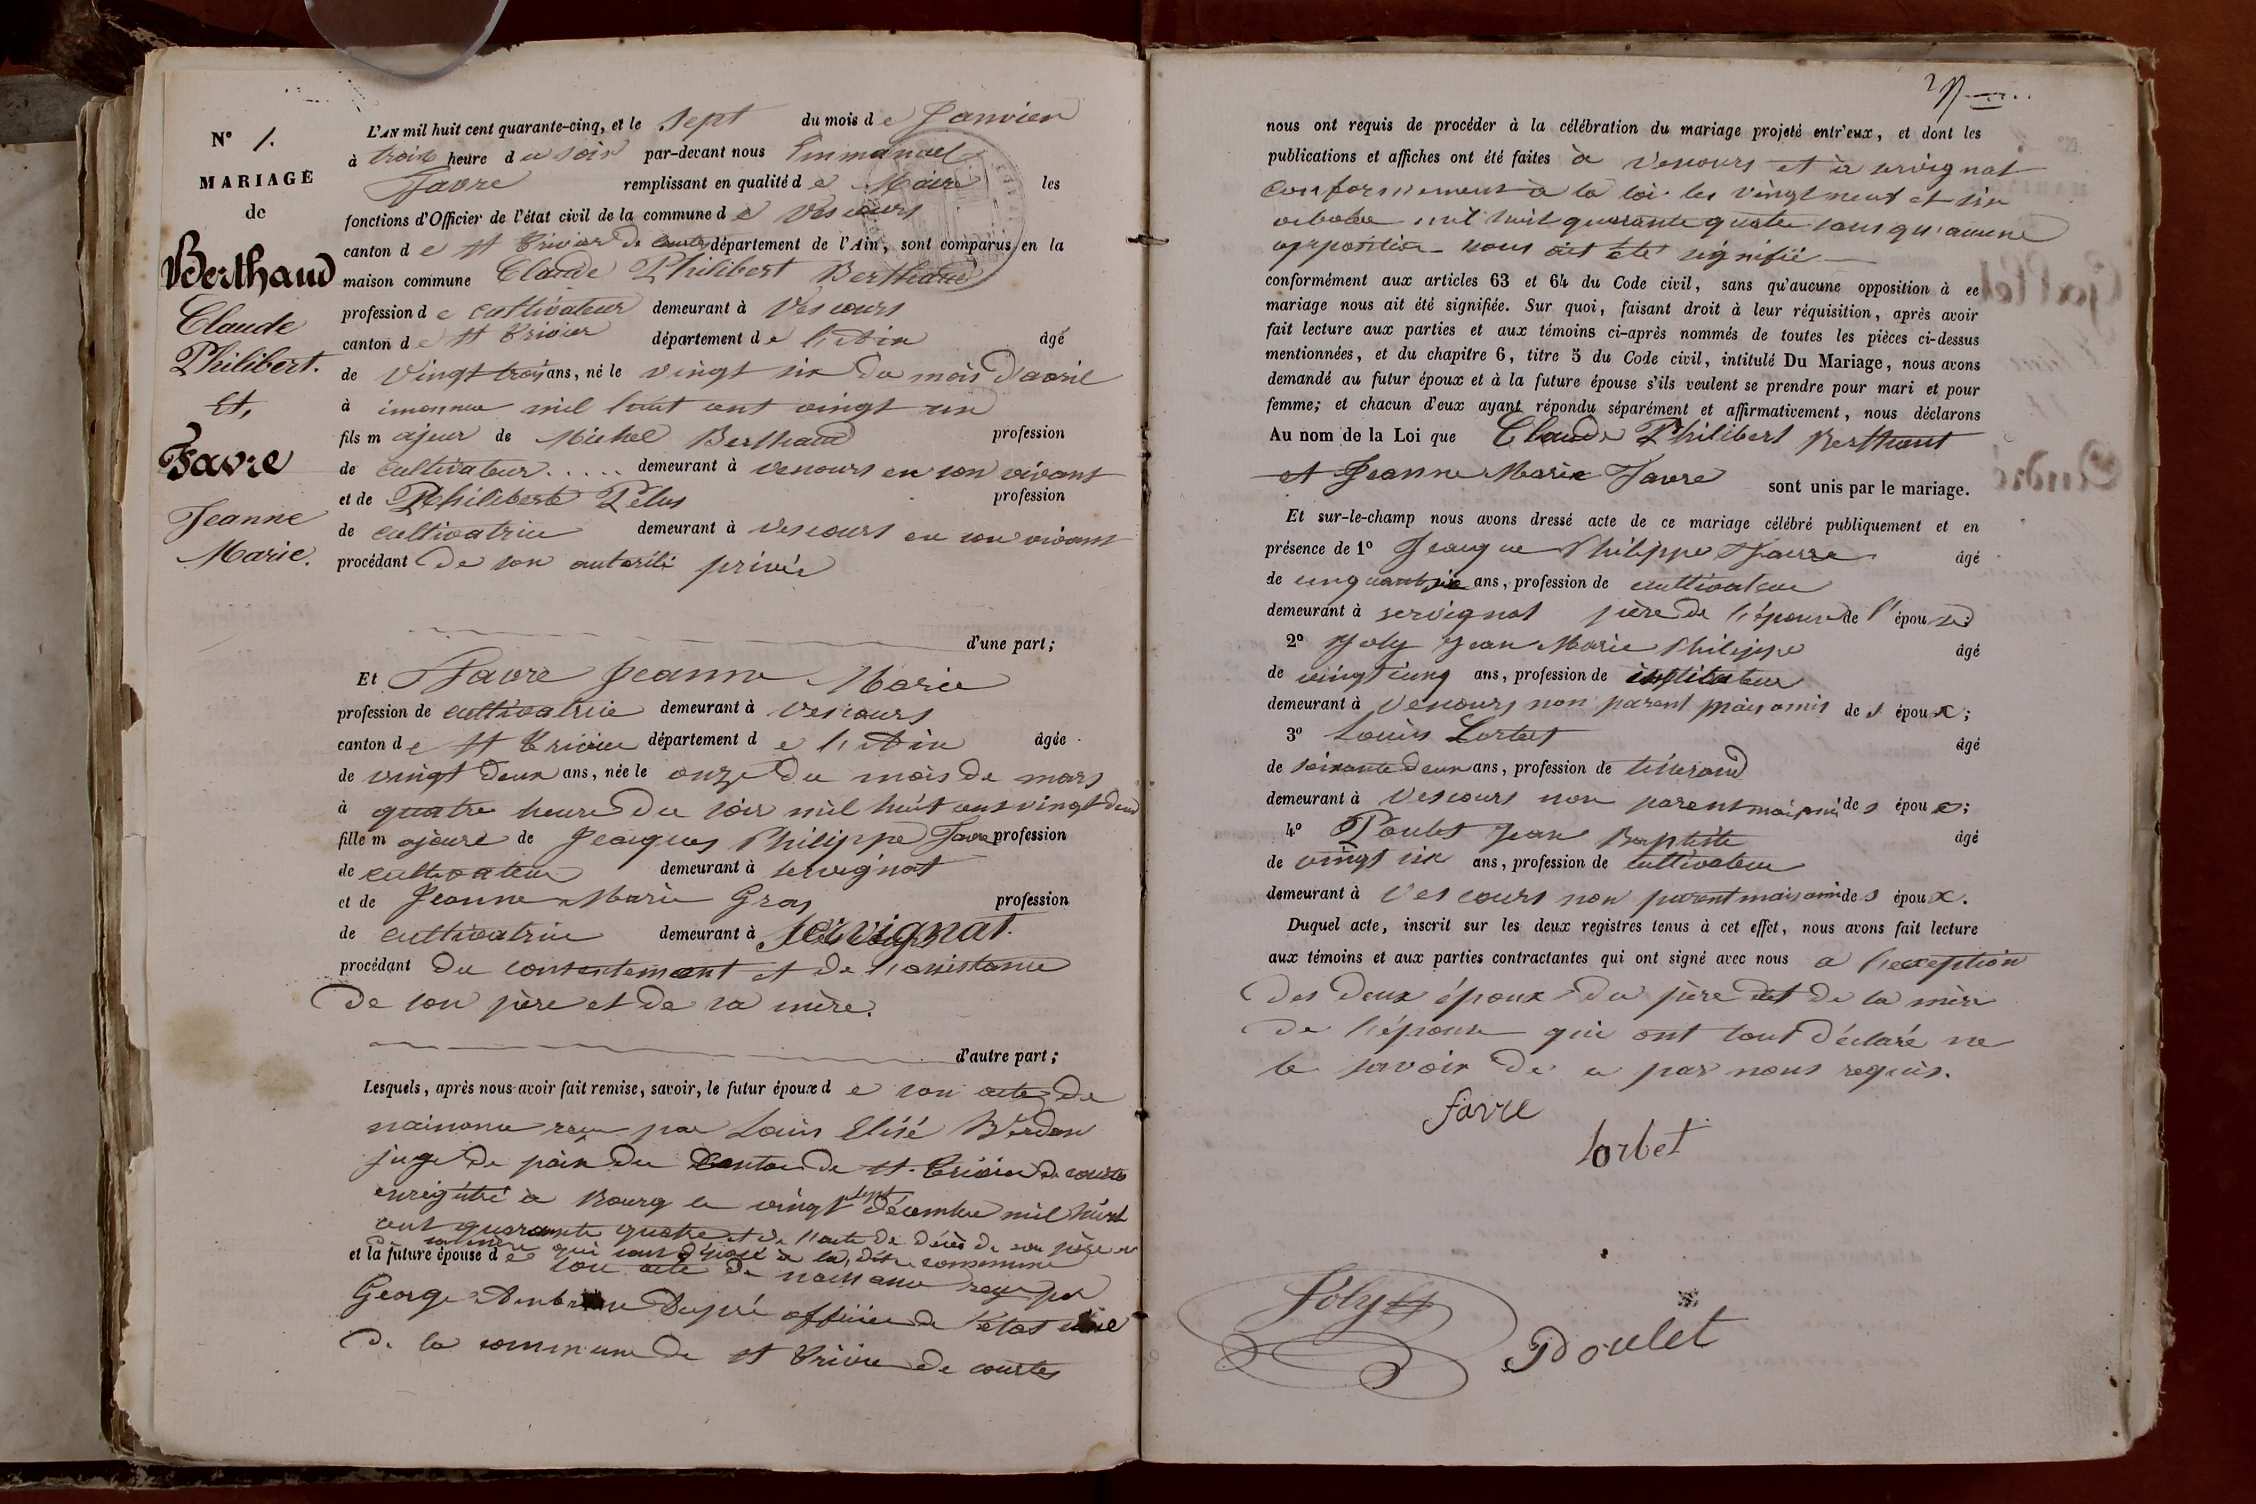 N° 1.
MARIAGE
de
Berthaud
Claude
Philibert.
et,
Favre
Jeanne
Marie.
L'AN mil huit cent quarante-cinq, et le sept du mois de Janvier
à trois heure du soir par-devant nous Emmanuel
Favre remplissant en qualité de Maire les
fonctions d'Officier de l'état civil de la commune de Vescours
canton de St Trivier de Courtes département de l'Ain, sont comparus en la
maison commune Claude Philibert Berthaud
profession de cultivateur demeurant à Vescours
canton de St Trivier département de l'Ain âgé
de vingt trois ans, né le vingt six du mois d'avril
à mil huit cent vingt un
fils majeur de Michel Berthaud profession
de cultivateur..... demeurant à vescours en son vivant
et de Philiberte Pélus profession
de cultivatrice demeurant à vescours en son vivant
procédant de son autorité privée
d'une part;
Et Favre Jeanne Marie
profession de cultivatrice demeurant à vescours
canton de St Trivier département de l'Ain âgée
de vingt deux ans, née le onze du mois de mars
à quatre heure du soir mil huit cent vingt deux
fille majeure de Jeacques Philippe Favre profession
de cultivateur demeurant à servignat
et de Jeanne Marie Gras profession
de cultivatrice demeurant à servignat.
procédant du consentement et de l'assistance
de son père et de sa mère.
d'autre part;
Lesquels, après nous avoir fait remise, savoir, le futur époux de son acte de
naissance reçu par Louis Elisé
juge de paix du Canton de St. Trivier de courtes
enregistré à Bourg le vingt sept décembre mil huit
cent quarante quatre et de l'acte de décès de son père et
sa mère qui sont déposé à la dite commune
et la future épouse de son acte de naissance reçu par
George Ambroise Dupré officier de l'état civil
de la commune de St Trivier de courtes
nous ont requis de procéder à la célébration du mariage projeté entr'eux, et dont les
publications et affiches ont été faites à vescours et à servignat
conformement à la loi les vingt neuf et six
octobre mil huit quarante quatre sans qu'aucune
opposition nous ait été signifié
conformément aux articles 63 et 64 du Code civil, sans qu'aucune opposition à ce
mariage nous ait été signifiée. Sur quoi, faisant droit à leur réquisition, après avoir
fait lecture aux parties et aux témoins ci-après nommés de toutes les pièces ci-dessus
mentionnées, et du chapitre 6, titre 5 du Code civil, intitulé Du Mariage, nous avons
demandé au futur époux et à la future épouse s'ils veulent se prendre pour mari et pour
femme; et chacun d'eux ayant répondu séparément et affirmativement, nous déclarons
Au nom de la Loi que Claude Philibert Berthaut
et Jeanne Marie Favre sont unis par le mariage.
Et sur-le-champ nous avons dressé acte de ce mariage célébré publiquement et en
présence de 1° Jeacque Philippe Favre âgé
de cinquante six ans, profession de cultivateur
demeurant à servignat père de l'épouse de l'épouse.
2° Joly Jean Marie Philippe âgé
de vingt cinq ans, profession de instituteur
demeurant à Vescours non parent mais amis des époux;
3° Louis Lorbet âgé
de soixante deux ans, profession de tisserand
demeurant à Vescours non parent mais ami des époux;
4° Poulet Jean Baptiste âgé
de vingt six ans, profession de cultivateur
demeurant à Vescours non parent mais ami des époux.
Duquel acte, inscrit sur les deux registres tenus à cet effet, nous avons fait lecture
aux témoins et aux parties contractantes qui ont signé avec nous a l'exception
des deux époux du père et de la mère
de l'épouse qui ont tout déclaré ne
le savoir de ce par nous requis.
favre
Lorbet
Joly
Poulet